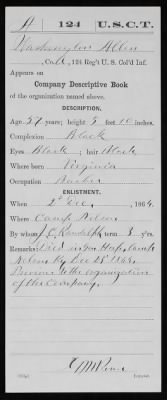 A 124 U.S.C.T.
Washington Allen
, Co. , 124 Reg't U. S. Col'd Inf.
Appears on
Company Descriptive Book
of the organization named above.
DESCRIPTION.
Age 37 years; height 5 feet 10 inches.
Complexion Black
Eyes Black; hair Black
Where born Virginia
Occupation
ENLISTMENT.
When 2 Dec, 1864.
Where Camp Nelson
By whom J C Randolph term 3 y'rs.
Remarks: Died in Hosp. Camp
Nelson Ky Dec 18 1864.
Previous to the organization
of the Company.